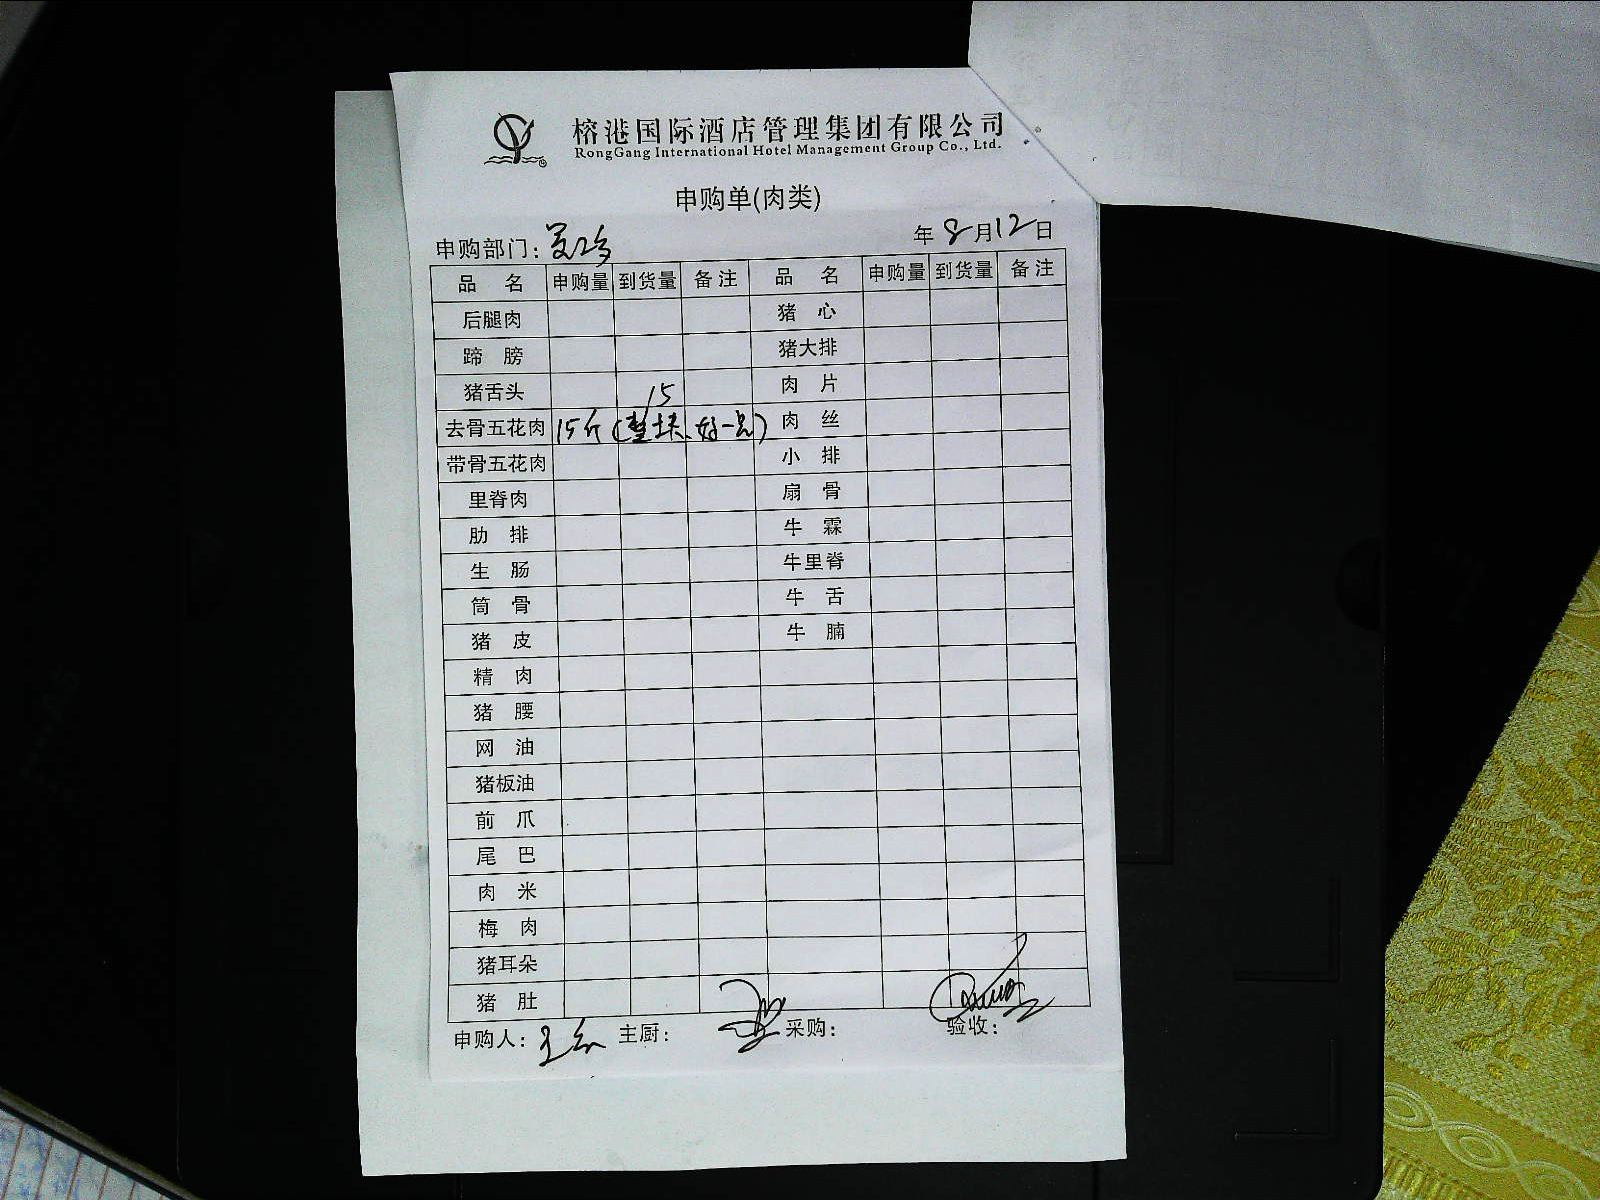 榕港国际酒店管理集团有限公司
RongGang International Hotel Management Group Co., Ltd.
申购单(肉类)
申购部门: 年 8 月 12 日
品 名 申购量 到货量 备注 品 名 申购量 到货量 备注
后腿肉 猪 心
蹄 膀 猪大排
猪舌头 15 肉 片
去骨五花肉 15斤 (整块、好一点) 肉 丝
带骨五花肉 小 排
里脊肉 扇 骨
肋 排 牛 霖
生 肠 牛里脊
筒 骨 牛 舌
猪 皮 牛 腩
精 肉
猪 腰
网 油
猪板油
前 爪
尾 巴
肉 米
梅 肉
猪耳朵
猪 肚
申购人: 主厨: 采购: 验收: